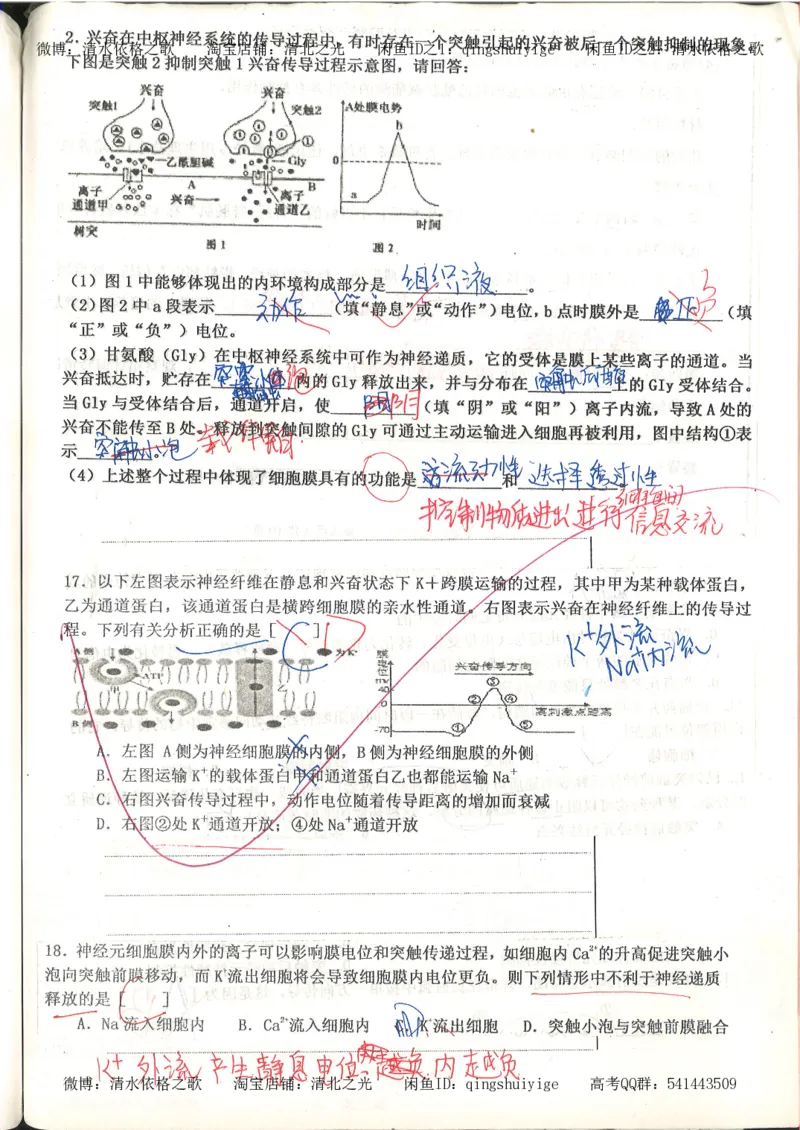 2. 兴奋在中枢神经系统的传导过程中，有时存在一个突触引起的兴奋被后一个突触抑制的现象。
微博：清水依格之歌 淘宝店铺：清北之光 闲鱼ID之1：qingshuiyige 闲鱼ID之2：清水依格之歌
下图是突触2抑制突触1兴奋传导过程示意图，请回答：
兴奋 兴奋
突触1 突触2 A处膜电势
① b
乙酰胆碱 Gly 0
A B
离子 离子 a
通道甲 兴奋 通道乙
时间
树突
图1 图2
（1）图1中能够体现出的内环境构成部分是 组织液 。
（2）图2中a段表示 动作 （填“静息”或“动作”）电位，b点时膜外是 负 （填
“正”或“负”）电位。
（3）甘氨酸（Gly）在中枢神经系统中可作为神经递质，它的受体是膜上某些离子的通道。当
兴奋抵达时，贮存在 内的Gly释放出来，并与分布在 突触后膜 上的Gly受体结合。
当Gly与受体结合后，通道开启，使 阴 （填“阴”或“阳”）离子内流，导致A处的
兴奋不能传至B处。释放到突触间隙的Gly可通过主动运输进入细胞再被利用，图中结构①表
示 突触小泡 载体
（4）上述整个过程中体现了细胞膜具有的功能是 流动性 和 选择透过性
控制物质进出 进行细胞间信息交流
17. 以下左图表示神经纤维在静息和兴奋状态下K+跨膜运输的过程，其中甲为某种载体蛋白，
乙为通道蛋白，该通道蛋白是横跨细胞膜的亲水性通道。右图表示兴奋在神经纤维上的传导过
程。下列有关分析正确的是［ C ］ D
K+外流
Na+内流
A侧 为K+ 膜电位
ATP 甲 乙 兴奋传导方向
③
② ④
0 离刺激点距离
B侧 -70 ① ⑤
A. 左图 A侧为神经细胞膜的内侧，B侧为神经细胞膜的外侧
B. 左图运输K+的载体蛋白甲和通道蛋白乙也都能运输Na+
C. 右图兴奋传导过程中，动作电位随着传导距离的增加而衰减
D. 右图②处K+通道开放；④处Na+通道开放
18. 神经元细胞膜内外的离子可以影响膜电位和突触传递过程，如细胞内Ca2+的升高促进突触小
泡向突触前膜移动，而K+流出细胞将会导致细胞膜内电位更负。则下列情形中不利于神经递质
释放的是［ ］
A. Na+流入细胞内 B. Ca2+流入细胞内 K+流出细胞 D. 突触小泡与突触前膜融合
K+外流 产生静息电位 内 负
微博：清水依格之歌 淘宝店铺：清北之光 闲鱼ID：qingshuiyige 高考QQ群：541443509